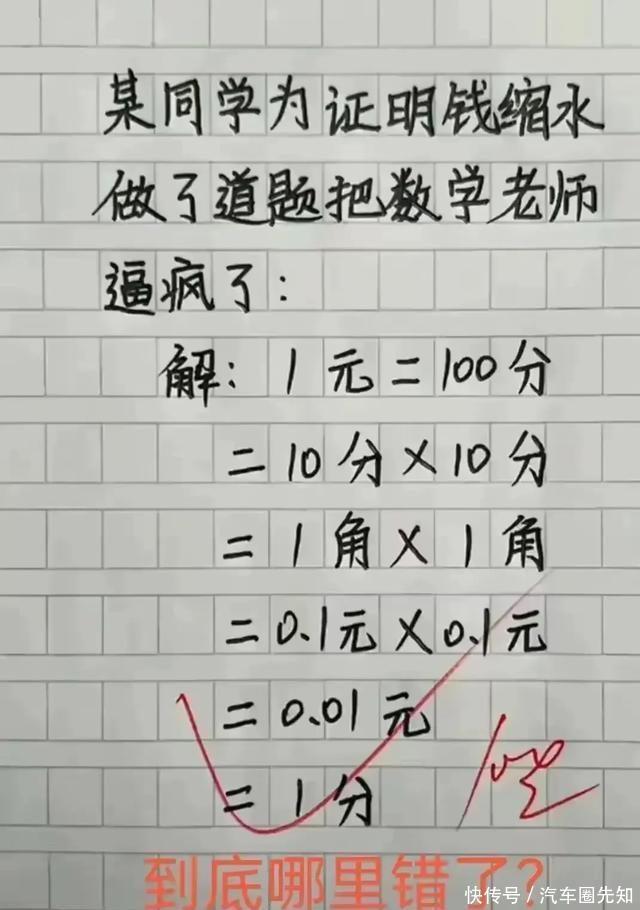 某同学为证明钱缩水
做了道题把数学老师
逼疯了:
解: 1元=100分
=10分×10分
=1角×1角
=0.1元×0.1元
=0.01元
=1分
100
到底哪里错了?
快传号/汽车圈先知